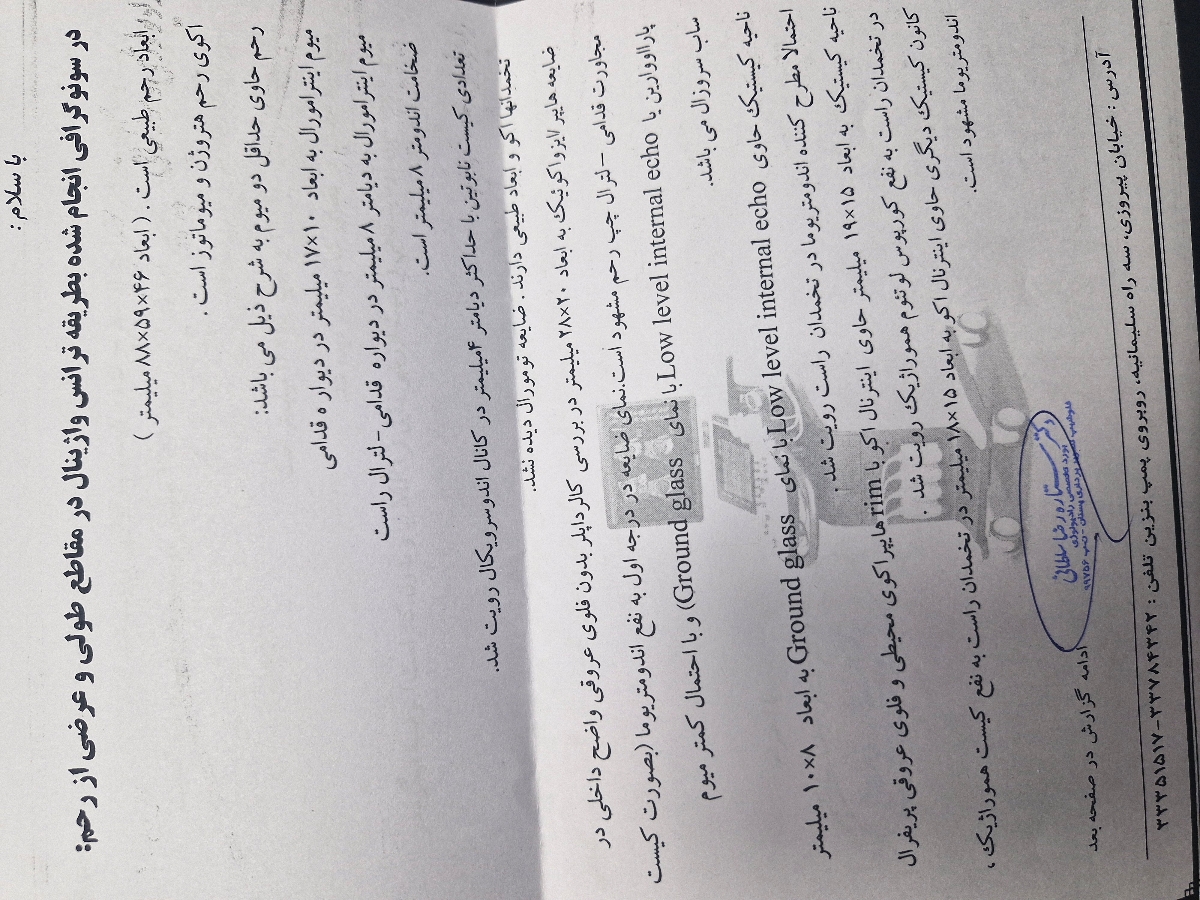 با سلام :
در سونوگرافی انجام شده بطریقه ترانس واژینال در مقاطع طولی و عرضی از رحم:
ابعاد رحم طبیعی است . ( ابعاد ۴۶×۵۹×۸۸ میلیمتر )
اکوی رحم هتروژن و میوماتوز است.
رحم حاوی حداقل دو میوم به شرح ذیل می باشد:
میوم اینترامورال به ابعاد ۱۰×۱۷ میلیمتر در دیواره قدامی
میوم اینترامورال به دیامتر ۸ میلیمتر در دیواره قدامی-لترال راست
ضخامت اندومتر ۸ میلیمتر است.
تعدادی کیست نابوتین با حداکثر دیامتر ۴ میلیمتر در کانال اندوسرویکال رویت شد.
تخمدانها اکو و ابعاد طبیعی دارند . ضایعه تومورال دیده نشد.
ضایعه هایپر/ایزواکوئیک به ابعاد ۲۰×۲۸ میلیمتر در بررسی کالرداپلر بدون فلوی عروقی واضح داخلی در
مجاورت قدامی -لترال چپ رحم مشهود است.نمای ضایعه در درجه اول به نفع اندومتریوما (بصورت کیست
پارااووارین یا Low level internal echo با نمای Ground glass) و با احتمال کمتر میوم
ساب سروزال می باشد.
ناحیه کیستیک حاوی Low level internal echo با نمای Ground glass به ابعاد ۸×۱۰ میلیمتر
احتمالا مطرح کننده اندومتریوما در تخمدان راست رویت شد .
ناحیه کیستیک به ابعاد ۱۵×۱۹ میلیمتر حاوی اینترنال اکو با rim هایپراکوی محیطی و فلوی عروقی پریفرال
در تخمدان راست به نفع کورپوس لوتئوم هموراژیک رویت شد .
کانون کیستیک دیگری حاوی اینترنال اکو به ابعاد ۱۵×۱۸ میلیمتر در تخمدان راست به نفع کیست هموراژیک ،
اندومتریوما مشهود است.
دکتر ستاره رضا سلطانی
بورد تخصصی رادیولوژی
ادامه گزارش در صفحه بعد
آدرس : خیابان پیروزی، سه راه سلیمانیه، روبروی پمپ بنزین تلفن : ۳۳۷۸۴۳۴۲-۳۳۳۵۱۵۱۷